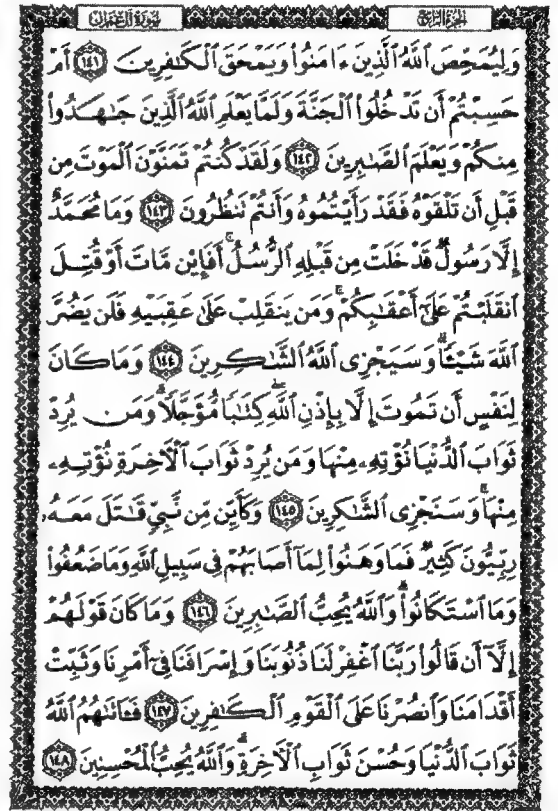 سورة آل عمران
الجزء الرابع
وَلِيُمَحِّصَ اللَّهُ الَّذِينَ ءَامَنُوا۟ وَيَمْحَقَ الْكَٰفِرِينَ ١٤١ أَمْ
حَسِبْتُمْ أَن تَدْخُلُوا۟ الْجَنَّةَ وَلَمَّا يَعْلَمِ اللَّهُ الَّذِينَ جَٰهَدُوا۟
مِنكُمْ وَيَعْلَمَ الصَّٰبِرِينَ ١٤٢ وَلَقَدْ كُنتُمْ تَمَنَّوْنَ الْمَوْتَ مِن
قَبْلِ أَن تَلْقَوْهُ فَقَدْ رَأَيْتُمُوهُ وَأَنتُمْ تَنظُرُونَ ١٤٣ وَمَا مُحَمَّدٌ
إِلَّا رَسُولٌ قَدْ خَلَتْ مِن قَبْلِهِ الرُّسُلُ ۚ أَفَإِي۟ن مَّاتَ أَوْ قُتِلَ
انقَلَبْتُمْ عَلَىٰٓ أَعْقَٰبِكُمْ ۚ وَمَن يَنقَلِبْ عَلَىٰ عَقِبَيْهِ فَلَن يَضُرَّ
اللَّهَ شَيْـًٔا ۗ وَسَيَجْزِى اللَّهُ الشَّٰكِرِينَ ١٤٤ وَمَا كَانَ
لِنَفْسٍ أَن تَمُوتَ إِلَّا بِإِذْنِ اللَّهِ كِتَٰبًا مُّؤَجَّلًا ۗ وَمَن يُرِدْ
ثَوَابَ الدُّنْيَا نُؤْتِهِۦ مِنْهَا وَمَن يُرِدْ ثَوَابَ الْءَاخِرَةِ نُؤْتِهِۦ
مِنْهَا ۚ وَسَنَجْزِى الشَّٰكِرِينَ ١٤٥ وَكَأَيِّن مِّن نَّبِىٍّ قَٰتَلَ مَعَهُۥ
رِبِّيُّونَ كَثِيرٌ فَمَا وَهَنُوا۟ لِمَآ أَصَابَهُمْ فِى سَبِيلِ اللَّهِ وَمَا ضَعُفُوا۟
وَمَا اسْتَكَانُوا۟ ۗ وَاللَّهُ يُحِبُّ الصَّٰبِرِينَ ١٤٦ وَمَا كَانَ قَوْلَهُمْ
إِلَّآ أَن قَالُوا۟ رَبَّنَا اغْفِرْ لَنَا ذُنُوبَنَا وَإِسْرَافَنَا فِىٓ أَمْرِنَا وَثَبِّتْ
أَقْدَامَنَا وَانصُرْنَا عَلَى الْقَوْمِ الْكَٰفِرِينَ ١٤٧ فَـَٔاتَىٰهُمُ اللَّهُ
ثَوَابَ الدُّنْيَا وَحُسْنَ ثَوَابِ الْءَاخِرَةِ ۗ وَاللَّهُ يُحِبُّ الْمُحْسِنِينَ ١٤٨